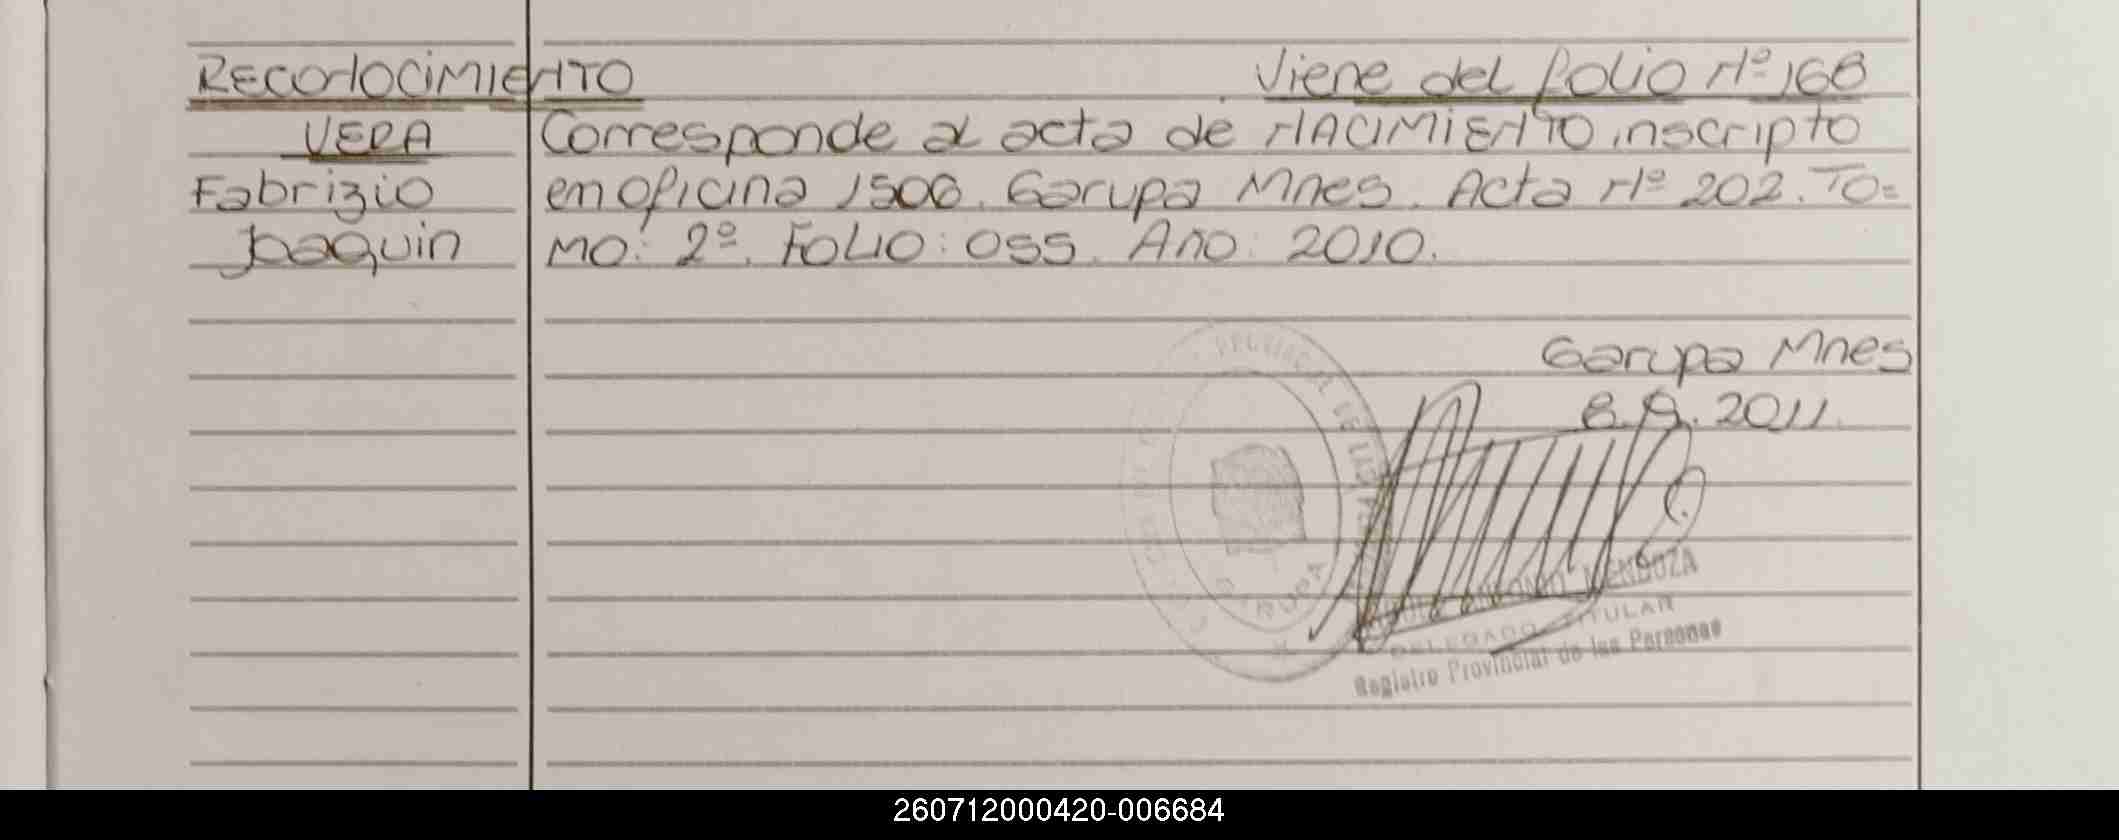 RECONOCIMIENTO
Viene del folio Nº 168
VERA
Fabrizio
Joaquin
Corresponde al acta de NACIMIENTO inscripto
en oficina 1506. Garupa Mnes. Acta Nº 202. TO=
MO: 2º. FOLIO: 055. Año: 2010.
Garupa Mnes
8.9.2011.
GARUPA
ANTONIO MENDOZA
DELEGADO TITULAR
Registro Provincial de las Personas
260712000420-006684